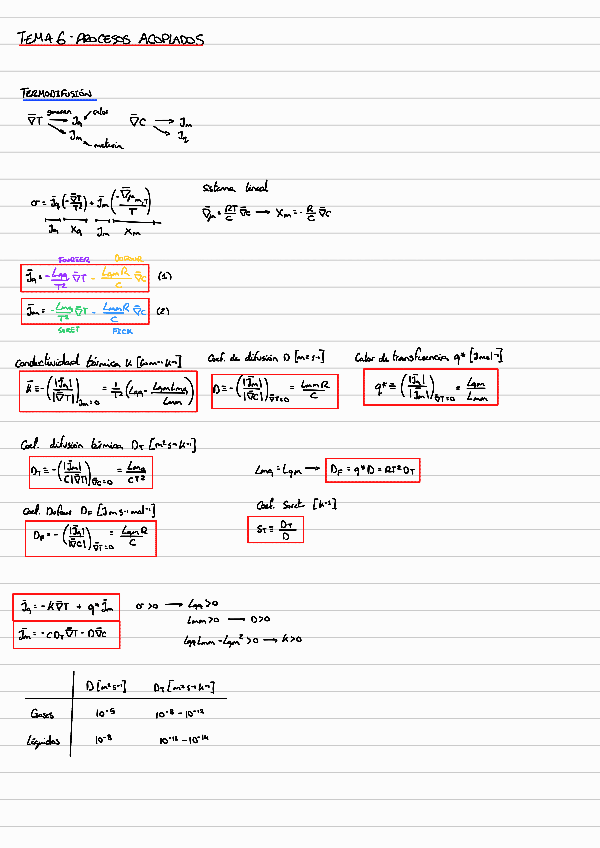 TEMA 6 - PROCESOS ACOPLADOS
TERMODIFUSIÓN
∇̄T → J̄q calor generan
→ J̄m materia
∇̄C → J̄m
→ J̄q
σ = J̄q (-∇̄T/T²) + J̄m (-∇̄μm,T/T)
Jq Xq Jm Xm
Sistema lineal
∇̄μ = RT/C ∇̄C → Xm = - R/C ∇̄C
FOURIER DUFOUR
J̄q = - Lqq/T² ∇̄T - LqmR/C ∇̄C (1)
J̄m = - Lmq/T² ∇̄T - LmmR/C ∇̄C (2)
SORET FICK
Conductividad térmica K [Jsm⁻¹K⁻¹]
K̄ = - (|J̄q|/|∇̄T|)Jm=0 = 1/T² (Lqq - LqmLmq/Lmm)
Coef. de difusión D [m²s⁻¹]
D = - (|J̄m|/|∇̄C|)∇̄T=0 = LmmR/C
Calor de transferencia q* [Jmol⁻¹]
q* ≡ (|J̄q|/|J̄m|)∇̄T=0 = Lqm/Lmm
Coef. difusión térmica DT [m²s⁻¹K⁻¹]
DT = - (|J̄m|/C|∇̄T|)∇̄C=0 = Lmq/CT²
Lmq = Lqm → DF = q*D = RT²DT
Coef. Dufour DF [Jm²s⁻¹mol⁻¹]
DF = - (|J̄q|/|∇̄C|)∇̄T=0 = LqmR/C
Coef. Soret [K⁻¹]
ST ≡ DT/D
J̄q = -K∇̄T + q* J̄m
J̄m = -CDT∇̄T - D∇̄C
σ>0 → Lqq>0
Lmm>0 → D>0
LqqLmm - Lqm² >0 → K>0
D [m²s⁻¹] DT [m²s⁻¹K⁻¹]
Gases 10⁻⁵ 10⁻⁸ - 10⁻¹²
Líquidos 10⁻⁸ 10⁻¹² - 10⁻¹⁴